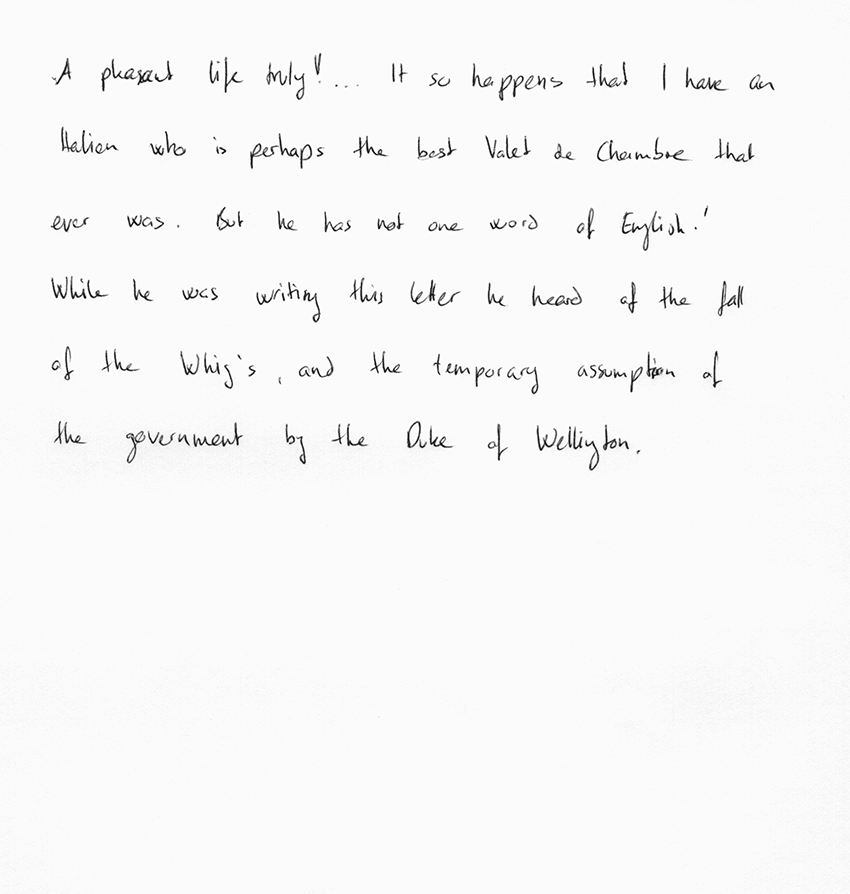 A pleasant life truly! ... It so happens that I have an
Italien who is perhaps the best Valet de Chambre that
ever was. But he has not one word of English.'
While he was writing this letter he heard of the fall
of the Whig's, and the temporary assumption of
the government by the Duke of Wellington.